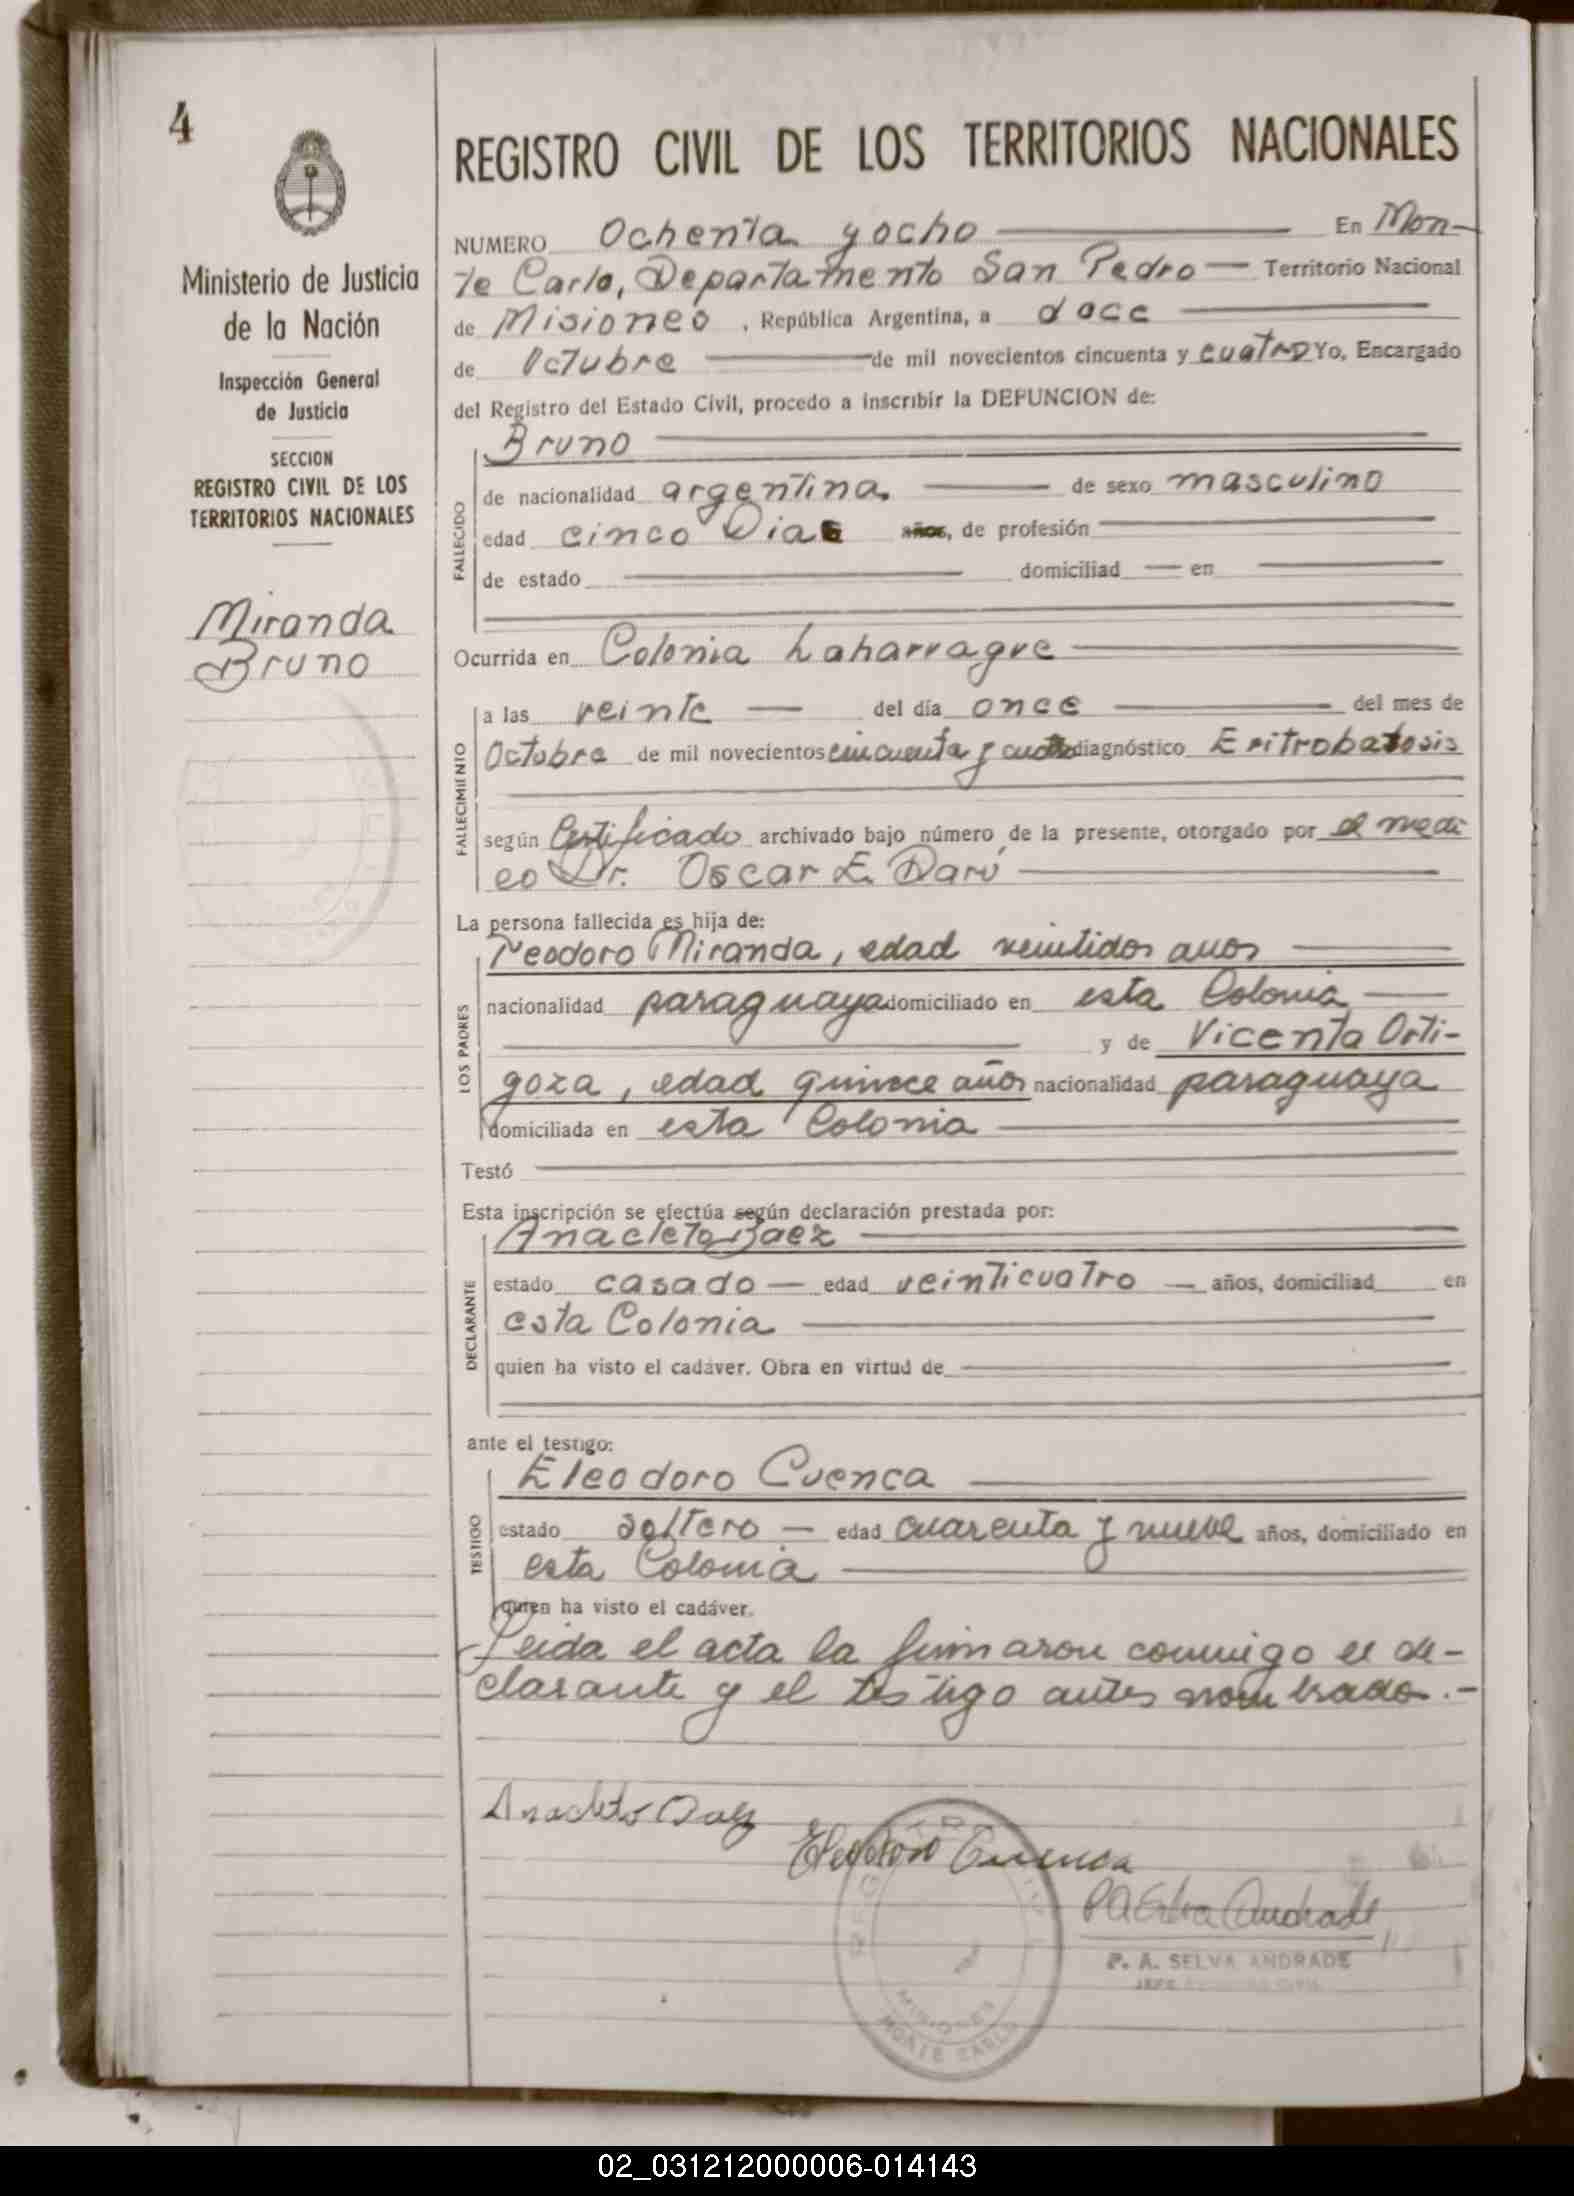 4
Ministerio de Justicia
de la Nación
Inspección General
de Justicia
SECCION
REGISTRO CIVIL DE LOS
TERRITORIOS NACIONALES
Miranda
Bruno
REGISTRO CIVIL DE LOS TERRITORIOS NACIONALES
NUMERO Ochenta y ocho En Mon-
te Carlo, Departamento San Pedro Territorio Nacional
de Misiones, República Argentina, a doce
de Octubre de mil novecientos cincuenta y cuatro Yo, Encargado
del Registro del Estado Civil, procedo a inscribir la DEFUNCION de:
Bruno
FALLECIDO
de nacionalidad argentina. de sexo masculino
edad cinco Dias años, de profesión
de estado domiciliad en
Ocurrida en Colonia Laharrague
FALLECIMIENTO
a las veinte del día once del mes de
Octubre de mil novecientos cincuenta y cuatro diagnóstico Eritrobatosis
según Certificado archivado bajo número de la presente, otorgado por el medi
co Dr. Oscar E. Darú
La persona fallecida es hija de:
LOS PADRES
Teodoro Miranda, edad veintidos años
nacionalidad paraguaya domiciliado en esta Colonia
y de Vicenta Orti-
goza, edad quince años nacionalidad paraguaya
domiciliada en esta Colonia
Testó
Esta inscripción se efectúa según declaración prestada por:
DECLARANTE
Anacleto Baez
estado casado edad veinticuatro años, domiciliad en
esta Colonia
quien ha visto el cadáver. Obra en virtud de
ante el testigo:
TESTIGO
Eleodoro Cuenca
estado soltero edad cuarenta y nueve años, domiciliado en
esta Colonia
quien ha visto el cadáver.
Leida el acta la firmaron conmigo el de-
clarante y el testigo antes nombrados.-
Anacleto Baez
Eleodoro Cuenca
P A Selva Andrade
P. A. SELVA ANDRADE
MISIONES
MONTE CARLO
02_031212000006-014143